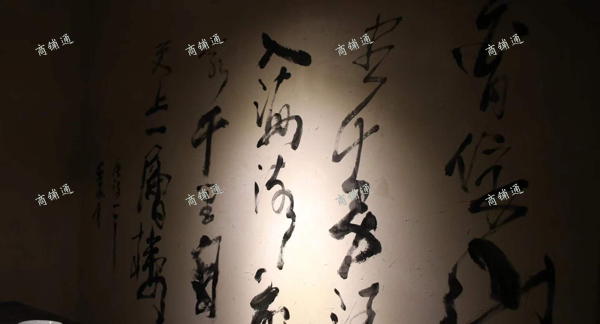 白日依山
尽黄河
入海流欲
窮千里目
更上一層樓
商铺通
商铺通
商铺通
商铺通
商铺通
商铺通
商铺通
商铺通